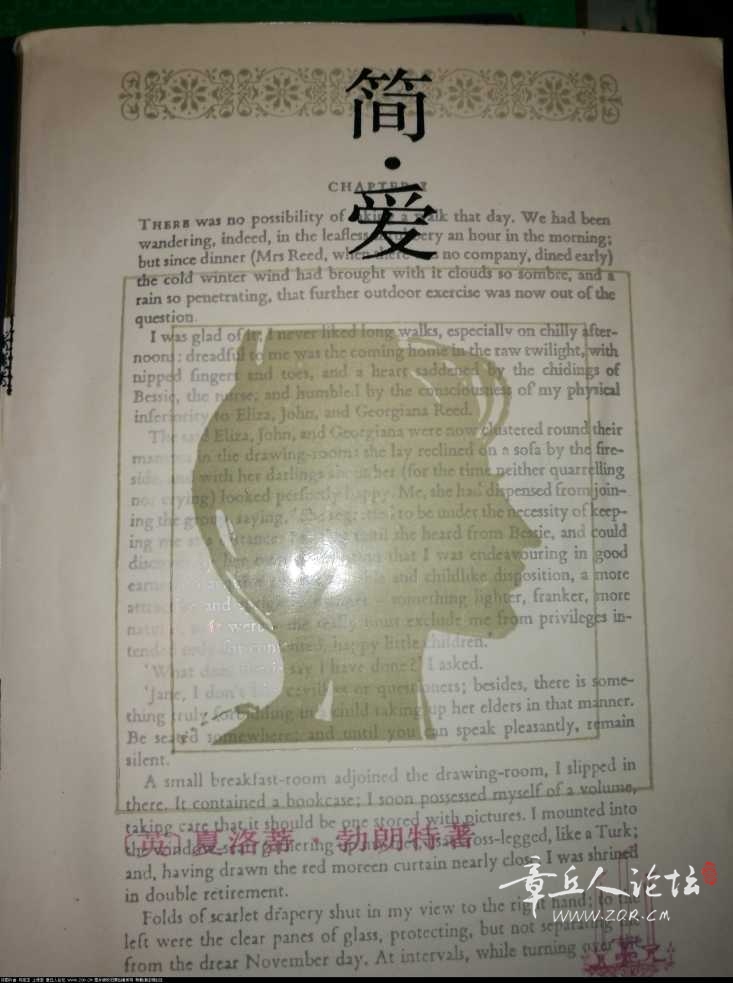 简·爱
CHAPTER I
THERE was no possibility of taking a walk that day. We had been
wandering, indeed, in the leafless shrubbery an hour in the morning;
but since dinner (Mrs Reed, when there was no company, dined early)
the cold winter wind had brought with it clouds so sombre, and a
rain so penetrating, that further outdoor exercise was now out of the
question.
I was glad of it; I never liked long walks, especially on chilly after-
noons: dreadful to me was the coming home in the raw twilight, with
nipped fingers and toes, and a heart saddened by the chidings of
Bessie, the nurse, and humbled by the consciousness of my physical
inferiority to Eliza, John, and Georgiana Reed.
The said Eliza, John, and Georgiana were now clustered round their
mamma in the drawing-room: she lay reclined on a sofa by the fire-
side, and with her darlings about her (for the time neither quarrelling
nor crying) looked perfectly happy. Me, she had dispensed from join-
ing the group, saying, 'She regretted to be under the necessity of keep-
ing me at a distance; but that until she heard from Bessie, and could
discover by her own observation that I was endeavouring in good
earnest to and childlike disposition, a more
attractive and something lighter, franker, more
natural, as it were – she really must exclude me from privileges in-
tended only for contented, happy little children.'
'What does Bessie say I have done?' I asked.
'Jane, I don't like cavillers or questioners; besides, there is some-
thing truly forbidding in a child taking up her elders in that manner.
Be seated somewhere; and until you can speak pleasantly, remain
silent.'
A small breakfast-room adjoined the drawing-room, I slipped in
there. It contained a bookcase; I soon possessed myself of a volume,
taking care that it should be one stored with pictures. I mounted into
〔英〕夏洛蒂·勃朗特著
the window-seat: gathering up my feet, I sat cross-legged, like a Turk;
and, having drawn the red moreen curtain nearly close, I was shrined
in double retirement.
Folds of scarlet drapery shut in my view to the right hand; to the
left were the clear panes of glass, protecting, but not separating me
from the drear November day. At intervals, while turning over
章丘人论坛
WWW.ZQR.CM